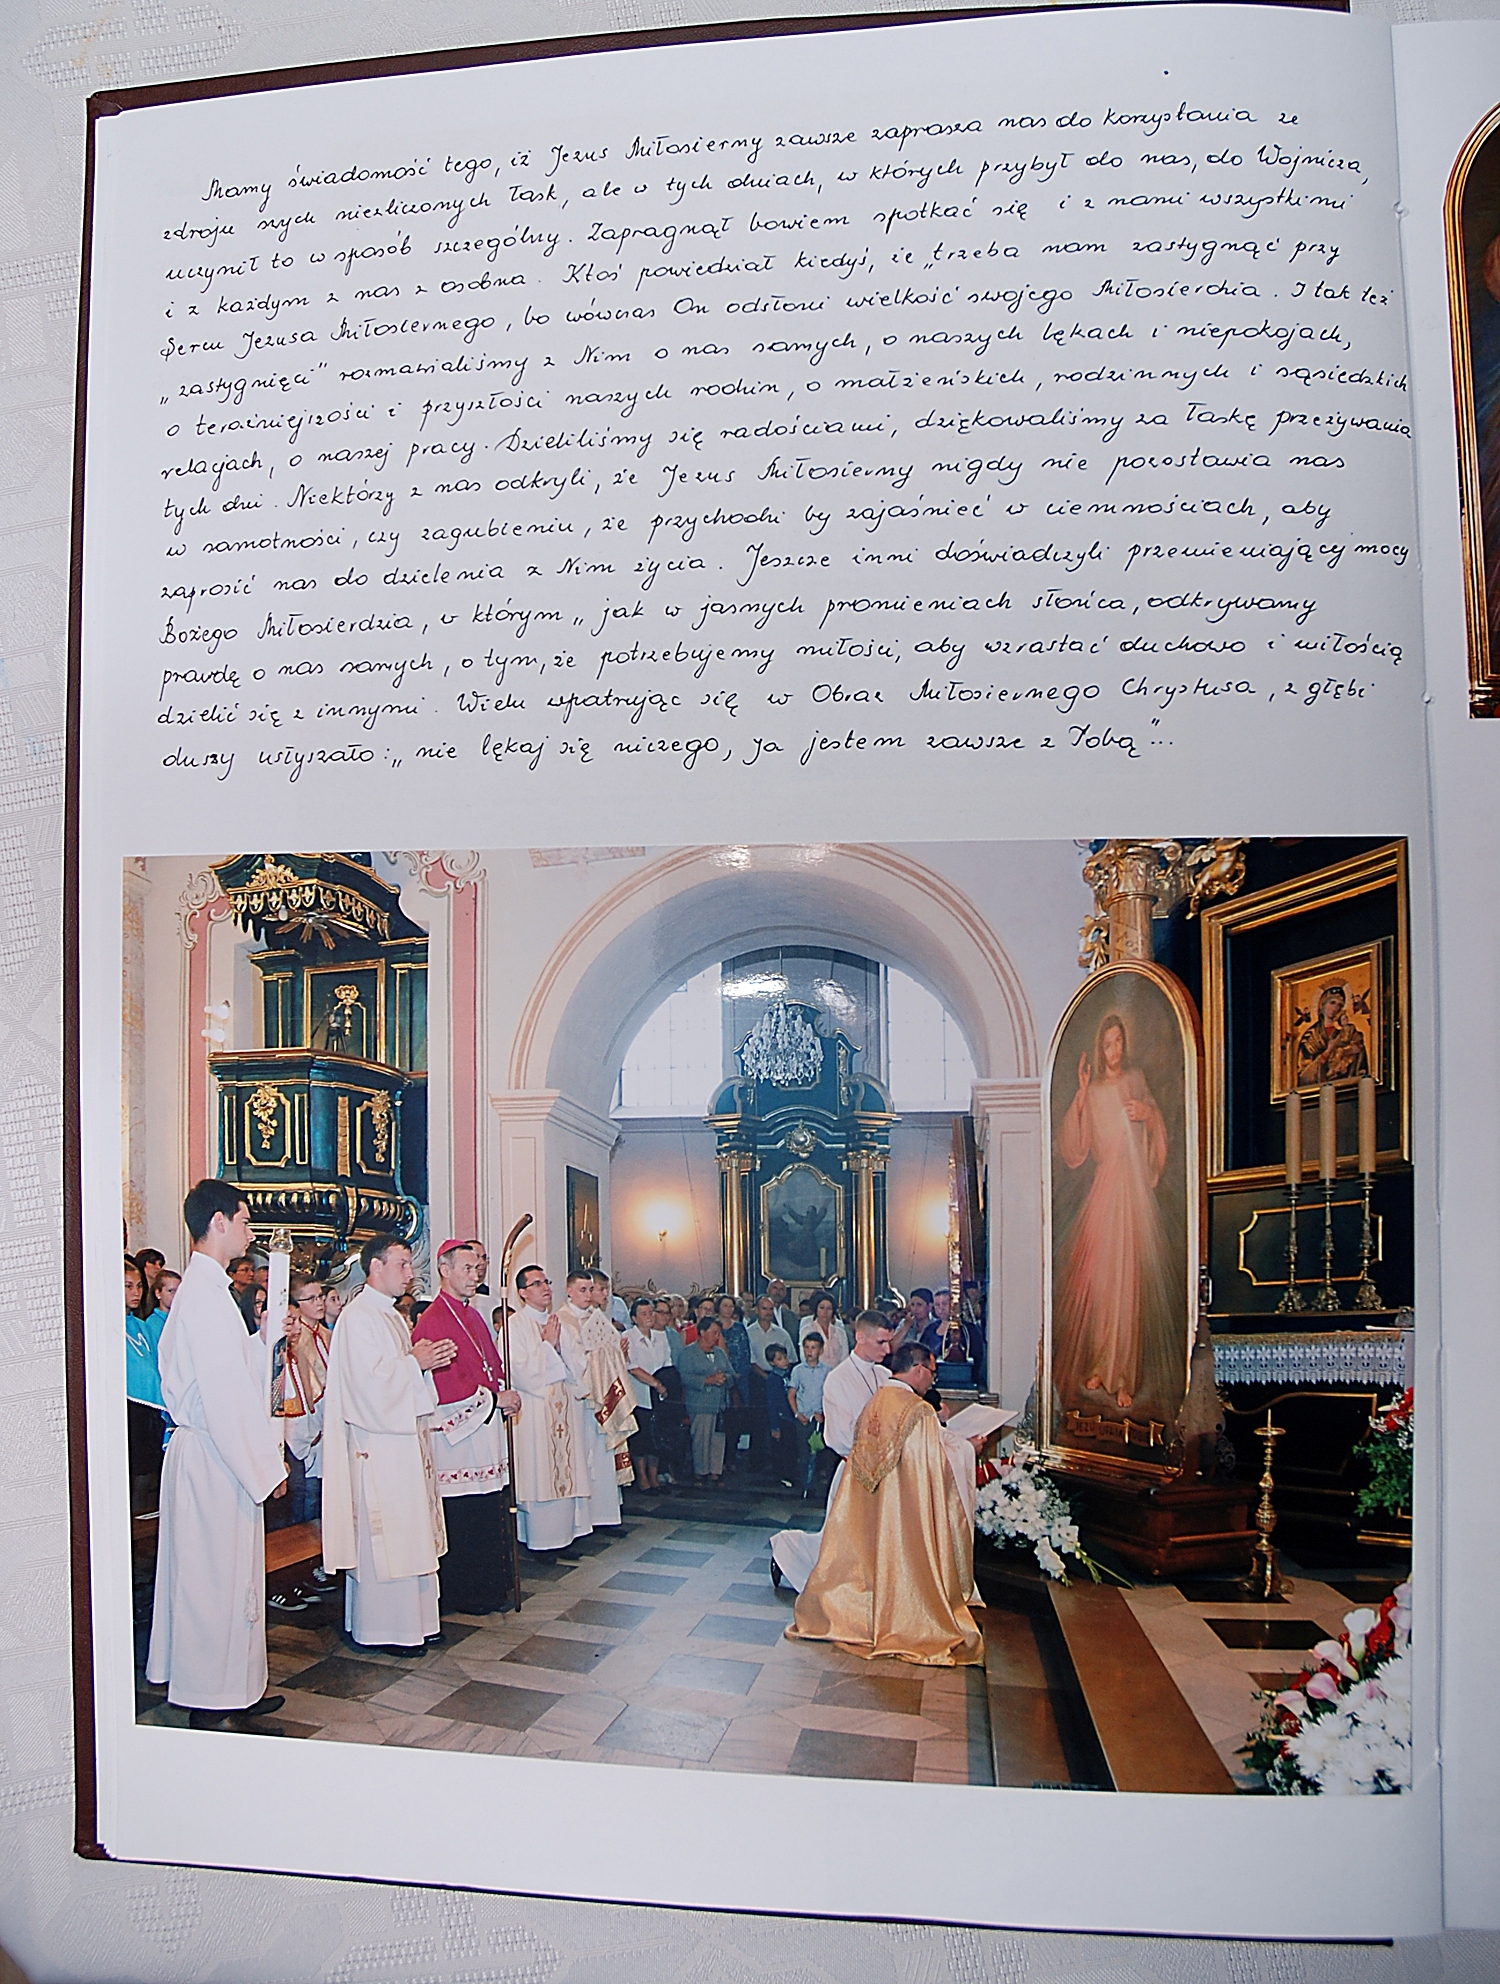 Mamy świadomość tego, iż Jezus Miłosierny zawsze zaprasza nas do korzystania ze
zdroju swych niezliczonych łask, ale w tych dniach, w których przybył do nas, do Wojnicza,
uczynił to w sposób szczególny. Zapragnął bowiem spotkać się i z nami wszystkimi
i z każdym z nas z osobna. Ktoś powiedział kiedyś, że „trzeba nam zastygnąć przy
Sercu Jezusa Miłosiernego, bo wówczas On odsłoni wielkość swojego Miłosierdzia. I tak też
„zastygnięci" rozmawialiśmy z Nim o nas samych, o naszych lękach i niepokojach,
o teraźniejszości i przyszłości naszych rodzin, o małżeńskich, rodzinnych i sąsiedzkich
relacjach, o naszej pracy. Dzieliliśmy się radościami, dziękowaliśmy za łaskę przeżywania
tych dni. Niektórzy z nas odkryli, że Jezus Miłosierny nigdy nie pozostawia nas
w samotności, czy zagubieniu, że przychodzi by zajaśnieć w ciemnościach, aby
zaprosić nas do dzielenia z Nim życia. Jeszcze inni doświadczyli przemieniającej mocy
Bożego Miłosierdzia, w którym „jak w jasnych promieniach słońca, odkrywamy
prawdę o nas samych, o tym, że potrzebujemy miłości, aby wzrastać duchowo i miłością
dzielić się z innymi. Wielu wpatrując się w Obraz Miłosiernego Chrystusa, z głębi
duszy usłyszało: „nie lękaj się niczego, Ja jestem zawsze z Tobą"...
JEZU UFAM TOBIE